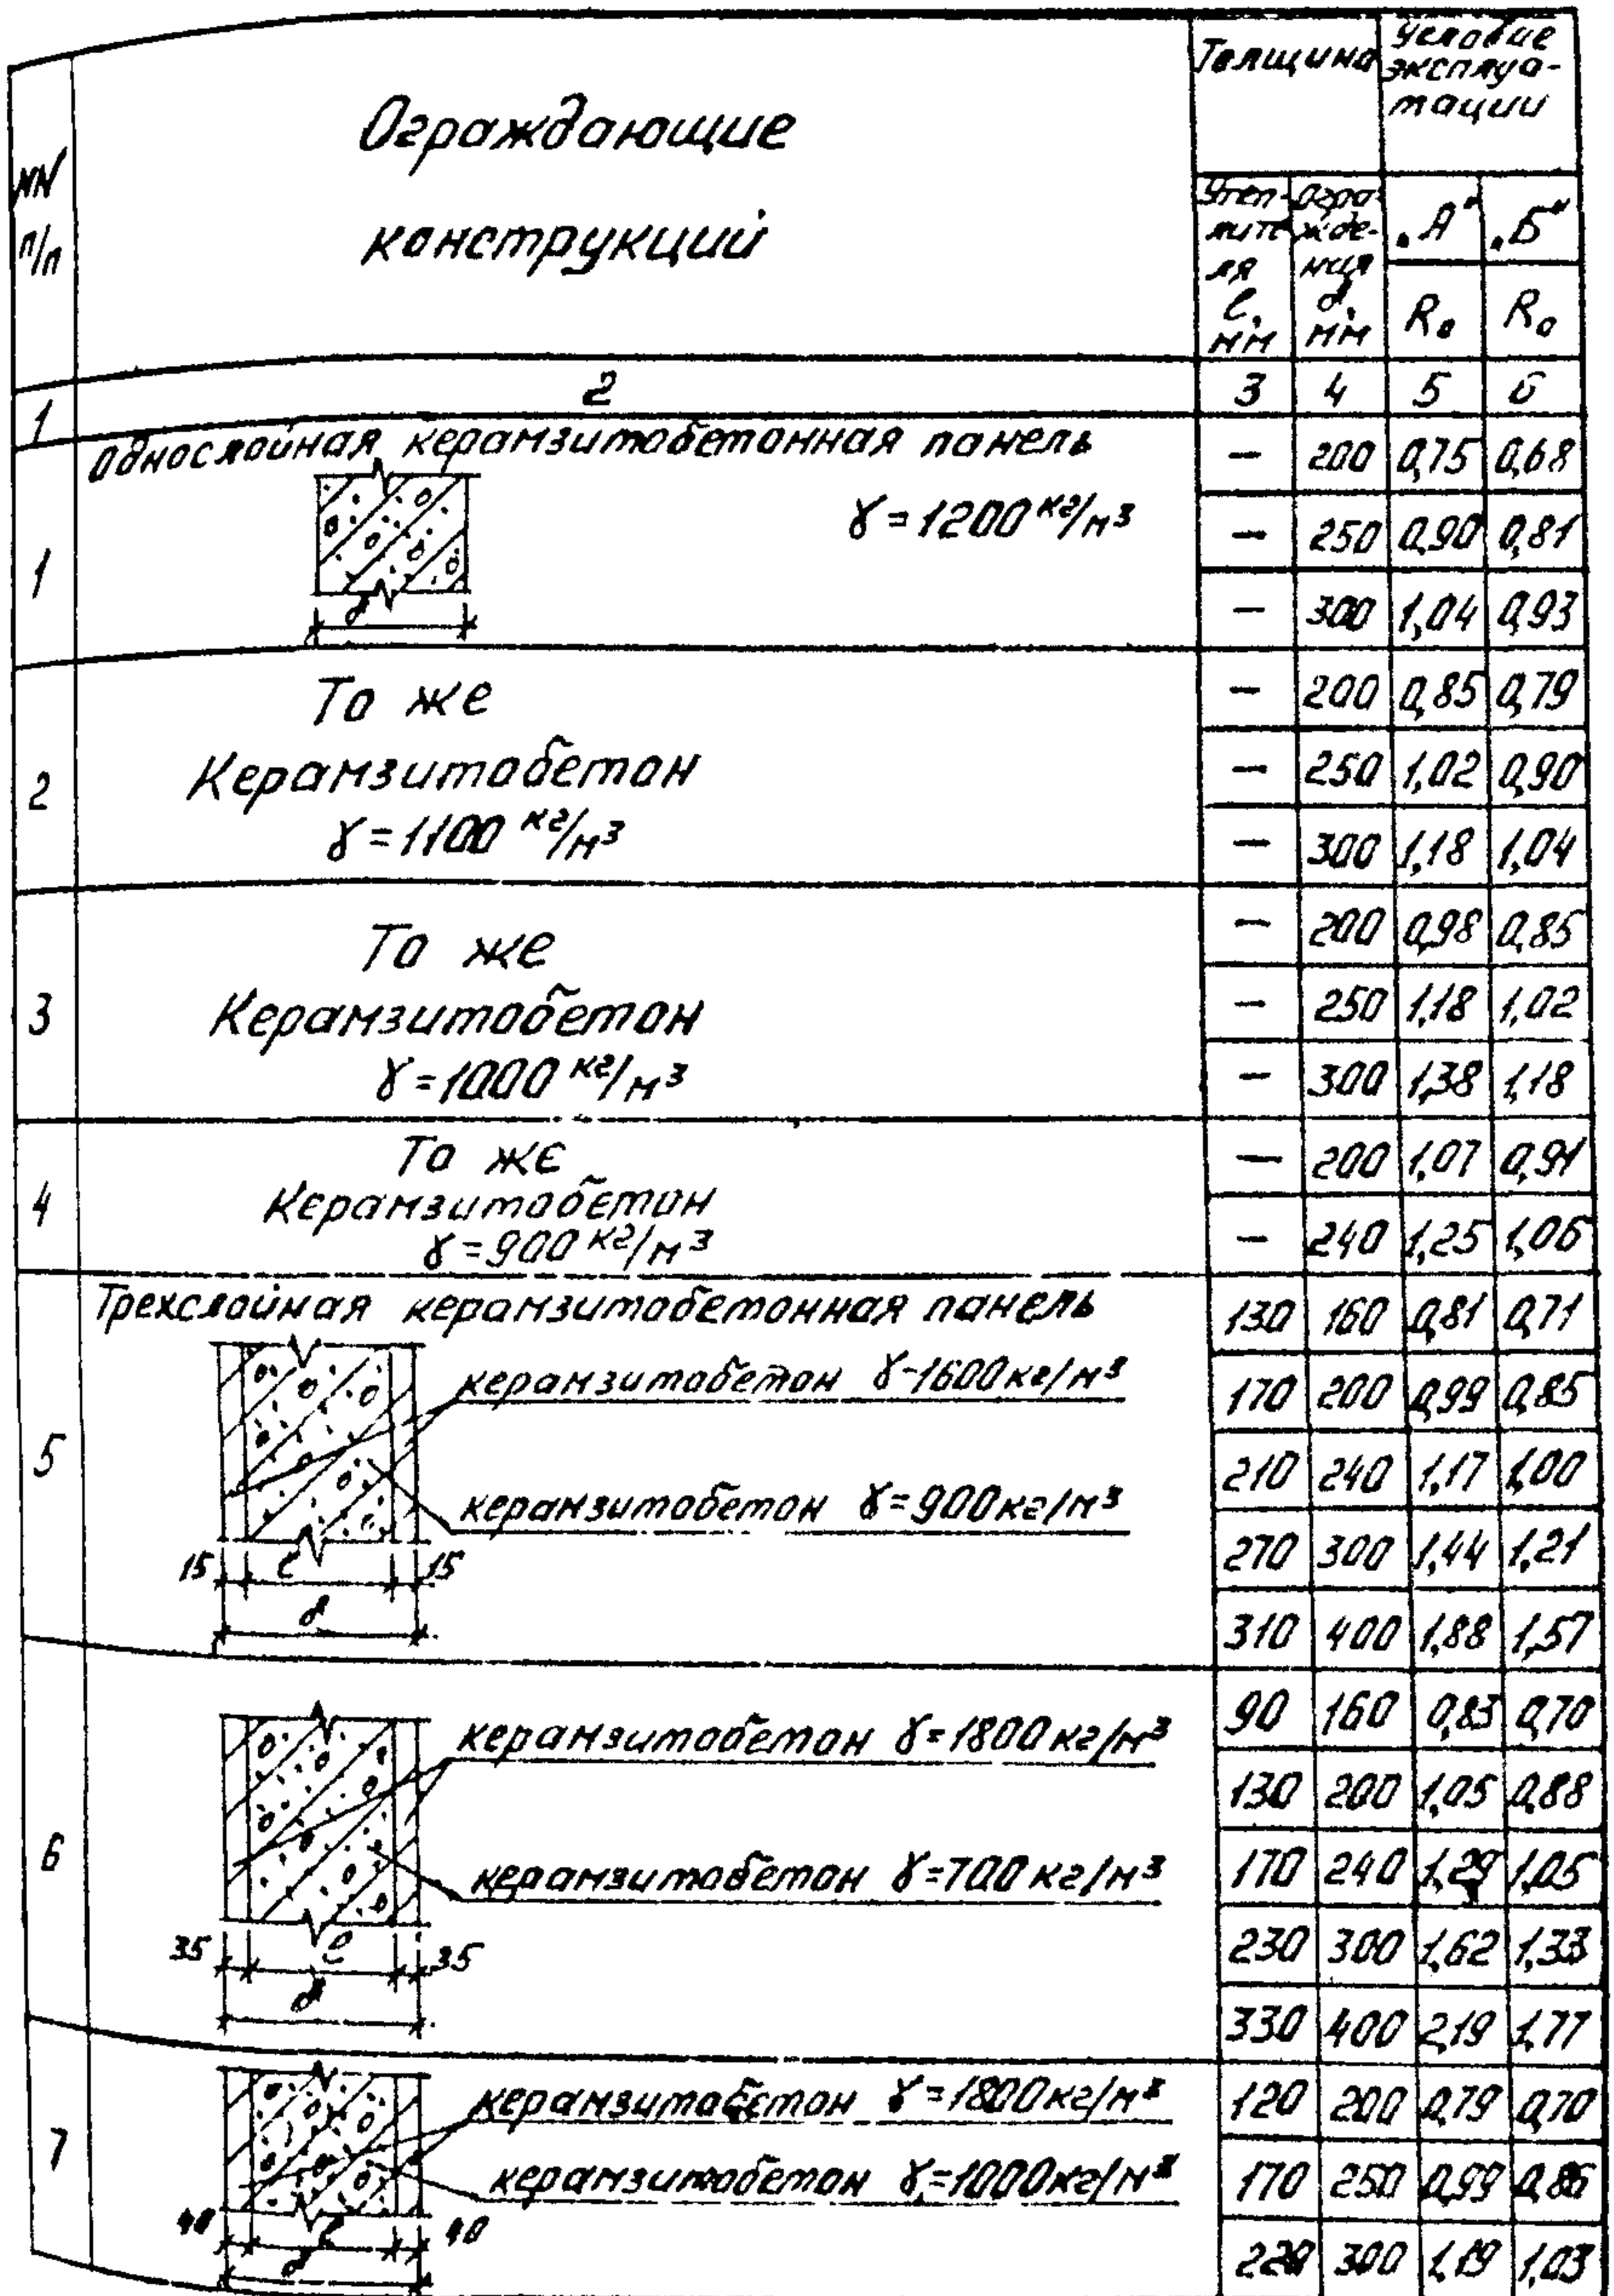 NN п/п
Ограждающие
конструкций
Толщина
Условие эксплуатации
Утеплителя е, мм
Ограждения d, мм
„А"
„Б"
R₀
R₀
1 2 3 4 5 6
1
Однослойная керамзитобетонная панель
γ = 1200 кг/м³
d
— 200 0,75 0,68
— 250 0,90 0,81
— 300 1,04 0,93
2
То же
Керамзитобетон
γ = 1100 кг/м³
— 200 0,85 0,79
— 250 1,02 0,90
— 300 1,18 1,04
3
То же
Керамзитобетон
γ = 1000 кг/м³
— 200 0,98 0,85
— 250 1,18 1,02
— 300 1,38 1,18
4
То же
Керамзитобетон
γ = 900 кг/м³
— 200 1,07 0,91
— 240 1,25 1,06
5
Трехслойная керамзитобетонная панель
керамзитобетон γ-1600кг/м³
керамзитобетон γ=900кг/м³
15 е 15
d
130 160 0,81 0,71
170 200 0,99 0,85
210 240 1,17 1,00
270 300 1,44 1,21
310 400 1,88 1,57
6
керамзитобетон γ=1800кг/м³
керамзитобетон γ=700кг/м³
35 е 35
d
90 160 0,83 0,70
130 200 1,05 0,88
170 240 1,29 1,05
230 300 1,62 1,33
330 400 2,19 1,77
7
керамзитобетон γ=1800кг/м³
керамзитобетон γ=1000кг/м³
40 е 40
d
120 200 0,79 0,70
170 250 0,99 0,86
220 300 1,19 1,03